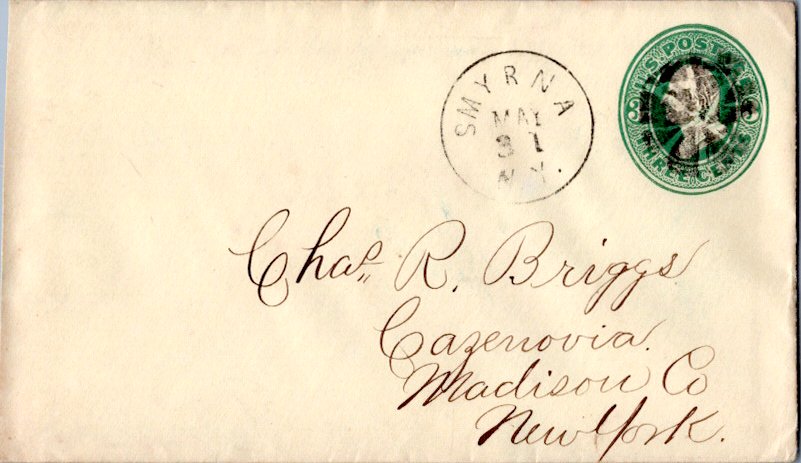 SMYRNA
MAY
31
N.Y.
U.S. POSTAGE
3 3
THREE CENTS
Chas. R. Briggs
Cazenovia.
Madison Co
New York.